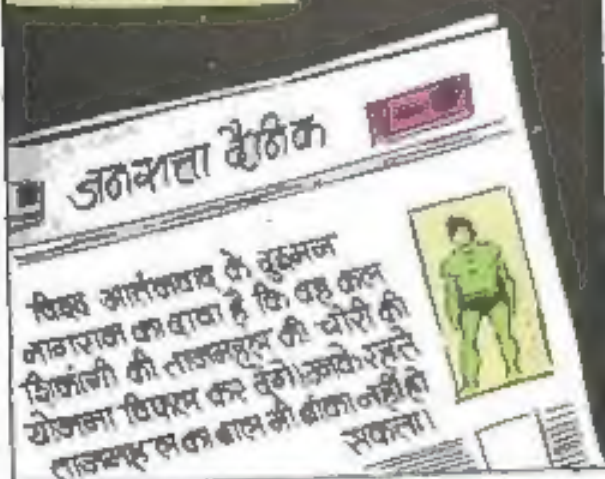 जनसत्ता दैनिक
विश्व आतंकवाद के दुश्मन
नागराज का दावा है कि वह कल
की ताजमहल की चोरी की
योजना विफल कर देगा। उसके रहते
ताजमहल का बाल भी बांका नहीं हो
सकता।